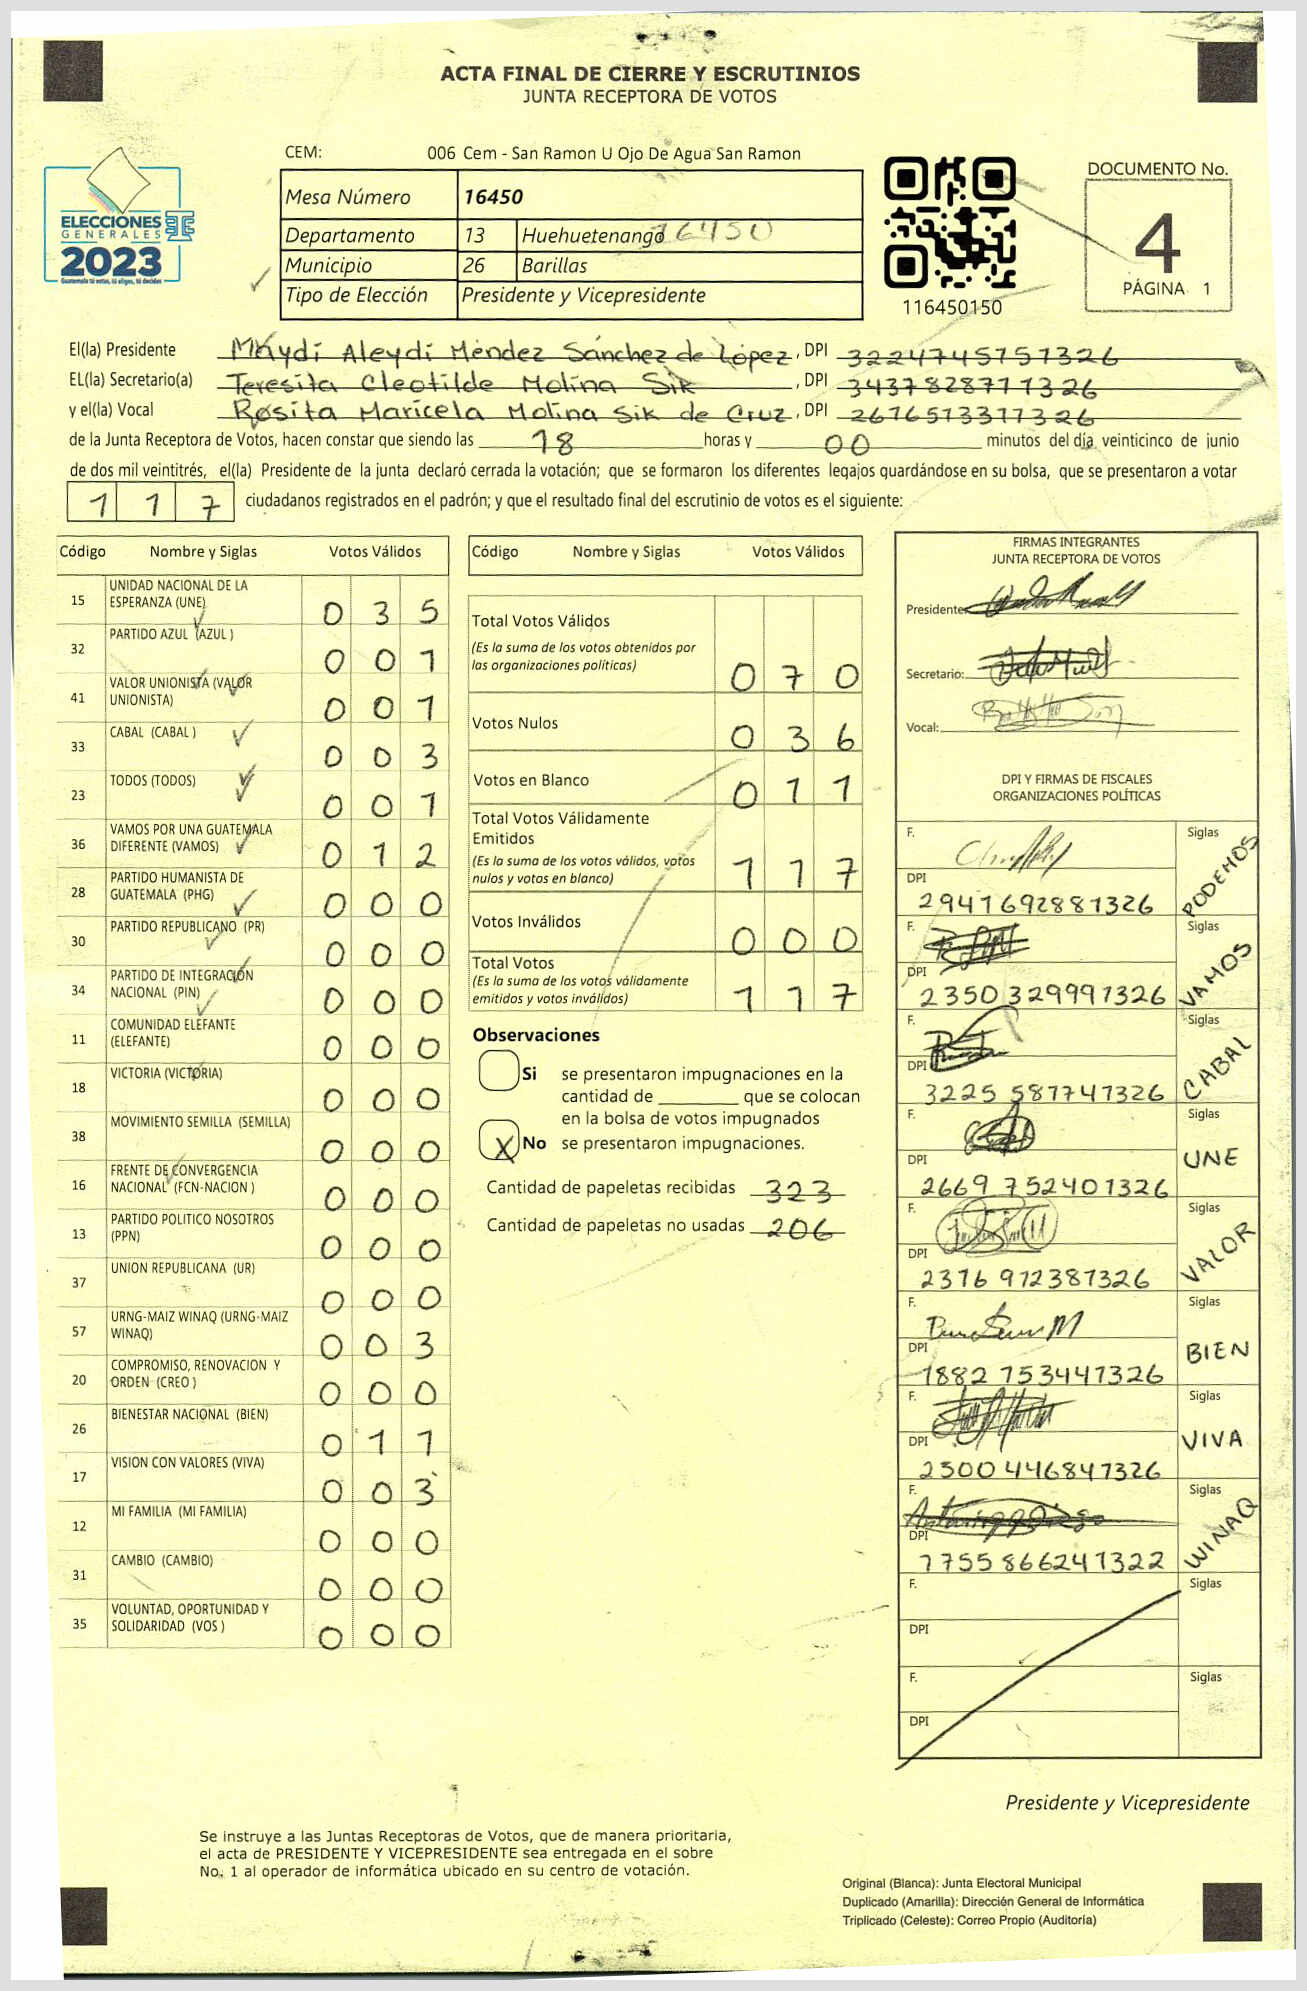 ACTA FINAL DE CIERRE Y ESCRUTINIOS
JUNTA RECEPTORA DE VOTOS
CEM: 006 Cem - San Ramon U Ojo De Agua San Ramon
ELECCIONES
GENERALES
2023
Guatemala tú votas, tú eliges, tú decides
Mesa Número 16450
Departamento 13 Huehuetenango 16450
Municipio 26 Barillas
Tipo de Elección Presidente y Vicepresidente
116450150
DOCUMENTO No.
4
PÁGINA 1
El(la) Presidente Maydi Aleydi Méndez Sánchez de López, DPI 3224745751326
EL(la) Secretario(a) Teresita Cleotilde Molina Sik, DPI 3437828711326
y el(la) Vocal Rosita Maricela Molina Sik de Cruz, DPI 2676513311326
de la Junta Receptora de Votos, hacen constar que siendo las 18 horas y 00 minutos del día veinticinco de junio
de dos mil veintitrés, el(la) Presidente de la junta declaró cerrada la votación; que se formaron los diferentes legajos quardándose en su bolsa, que se presentaron a votar
1 1 7 ciudadanos registrados en el padrón; y que el resultado final del escrutinio de votos es el siguiente:
Código Nombre y Siglas Votos Válidos
15 UNIDAD NACIONAL DE LA
ESPERANZA (UNE) 0 3 5
32 PARTIDO AZUL (AZUL ) 0 0 1
41 VALOR UNIONISTA (VALOR
UNIONISTA) 0 0 1
33 CABAL (CABAL ) 0 0 3
23 TODOS (TODOS) 0 0 1
36 VAMOS POR UNA GUATEMALA
DIFERENTE (VAMOS) 0 1 2
28 PARTIDO HUMANISTA DE
GUATEMALA (PHG) 0 0 0
30 PARTIDO REPUBLICANO (PR) 0 0 0
34 PARTIDO DE INTEGRACIÓN
NACIONAL (PIN) 0 0 0
11 COMUNIDAD ELEFANTE
(ELEFANTE) 0 0 0
18 VICTORIA (VICTORIA) 0 0 0
38 MOVIMIENTO SEMILLA (SEMILLA) 0 0 0
16 FRENTE DE CONVERGENCIA
NACIONAL (FCN-NACION ) 0 0 0
13 PARTIDO POLITICO NOSOTROS
(PPN) 0 0 0
37 UNION REPUBLICANA (UR) 0 0 0
57 URNG-MAIZ WINAQ (URNG-MAIZ
WINAQ) 0 0 3
20 COMPROMISO, RENOVACION Y
ORDEN (CREO ) 0 0 0
26 BIENESTAR NACIONAL (BIEN) 0 1 1
17 VISION CON VALORES (VIVA) 0 0 3
12 MI FAMILIA (MI FAMILIA) 0 0 0
31 CAMBIO (CAMBIO) 0 0 0
35 VOLUNTAD, OPORTUNIDAD Y
SOLIDARIDAD (VOS ) 0 0 0
Código Nombre y Siglas Votos Válidos
Total Votos Válidos
(Es la suma de los votos obtenidos por
las organizaciones políticas) 0 7 0
Votos Nulos 0 3 6
Votos en Blanco 0 1 1
Total Votos Válidamente
Emitidos
(Es la suma de los votos válidos, votos
nulos y votos en blanco) 1 1 7
Votos Inválidos 0 0 0
Total Votos
(Es la suma de los votos válidamente
emitidos y votos inválidos) 1 1 7
Observaciones
Si se presentaron impugnaciones en la
cantidad de ________ que se colocan
en la bolsa de votos impugnados
X No se presentaron impugnaciones.
Cantidad de papeletas recibidas 323
Cantidad de papeletas no usadas 206
FIRMAS INTEGRANTES
JUNTA RECEPTORA DE VOTOS
Presidente:
Secretario:
Vocal:
DPI Y FIRMAS DE FISCALES
ORGANIZACIONES POLÍTICAS
F. Siglas
DPI 2941692881326 PODEMOS
F. Siglas
DPI 2350329991326 VAMOS
F. Siglas
DPI 3225587741326 CABAL
F. Siglas
DPI 2669752401326 UNE
F. Siglas
DPI 2316912381326 VALOR
F. Siglas
DPI 1882753441326 BIEN
F. Siglas
DPI 2500446841326 VIVA
F. Siglas
DPI 1755866241322 WINAQ
F. Siglas
DPI
F. Siglas
DPI
Presidente y Vicepresidente
Se instruye a las Juntas Receptoras de Votos, que de manera prioritaria,
el acta de PRESIDENTE Y VICEPRESIDENTE sea entregada en el sobre
No. 1 al operador de informática ubicado en su centro de votación.
Original (Blanca): Junta Electoral Municipal
Duplicado (Amarilla): Dirección General de Informática
Triplicado (Celeste): Correo Propio (Auditoría)